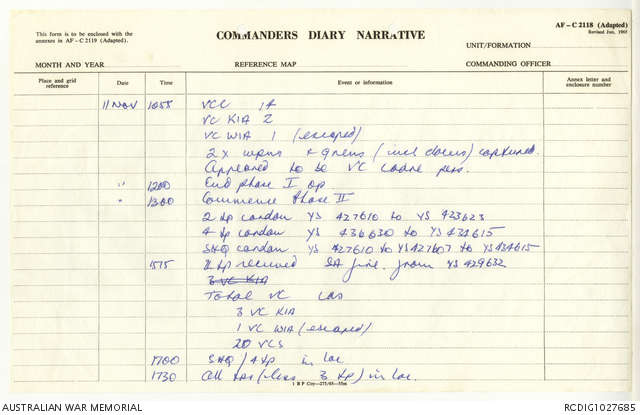 This form is to be enclosed with the
annexes in AF – C 2119 (Adapted).
COMMANDERS DIARY NARRATIVE
AF – C 2118 (Adapted)
Revised Jun, 1965
UNIT/FORMATION
MONTH AND YEAR
REFERENCE MAP
COMMANDING OFFICER
Place and grid
reference
Date
Time
Event or information
Annex letter and
enclosure number
11 Nov 1058 VCC 14
VC KIA 2
VC WIA 1 (escaped)
2 x wpns + grens (incl docus) captured.
Appeared to be VC cadre pers.
" 1200 End phase I op
" 1300 Commence Phase II
2 tp cordon YS 427610 to YS 423623
4 tp cordon YS 436630 to YS 434615
SHQ cordon YS 427610 to YS 427607 to YS 434615
1515 tp received SA fire from YS 429632
3 VC KIA
Total VC cas
3 VC KIA
1 VC WIA (escaped)
20 VCS
1700 SHQ / 4 tp in loc
1730 Call (less 3 tp) in loc.
AUSTRALIAN WAR MEMORIAL
RCDIG1027685